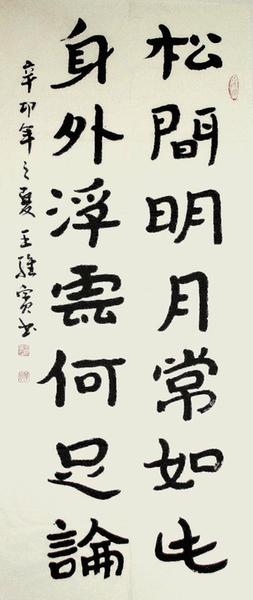 松間明月常如此
身外浮雲何足論
辛卯年之夏 王